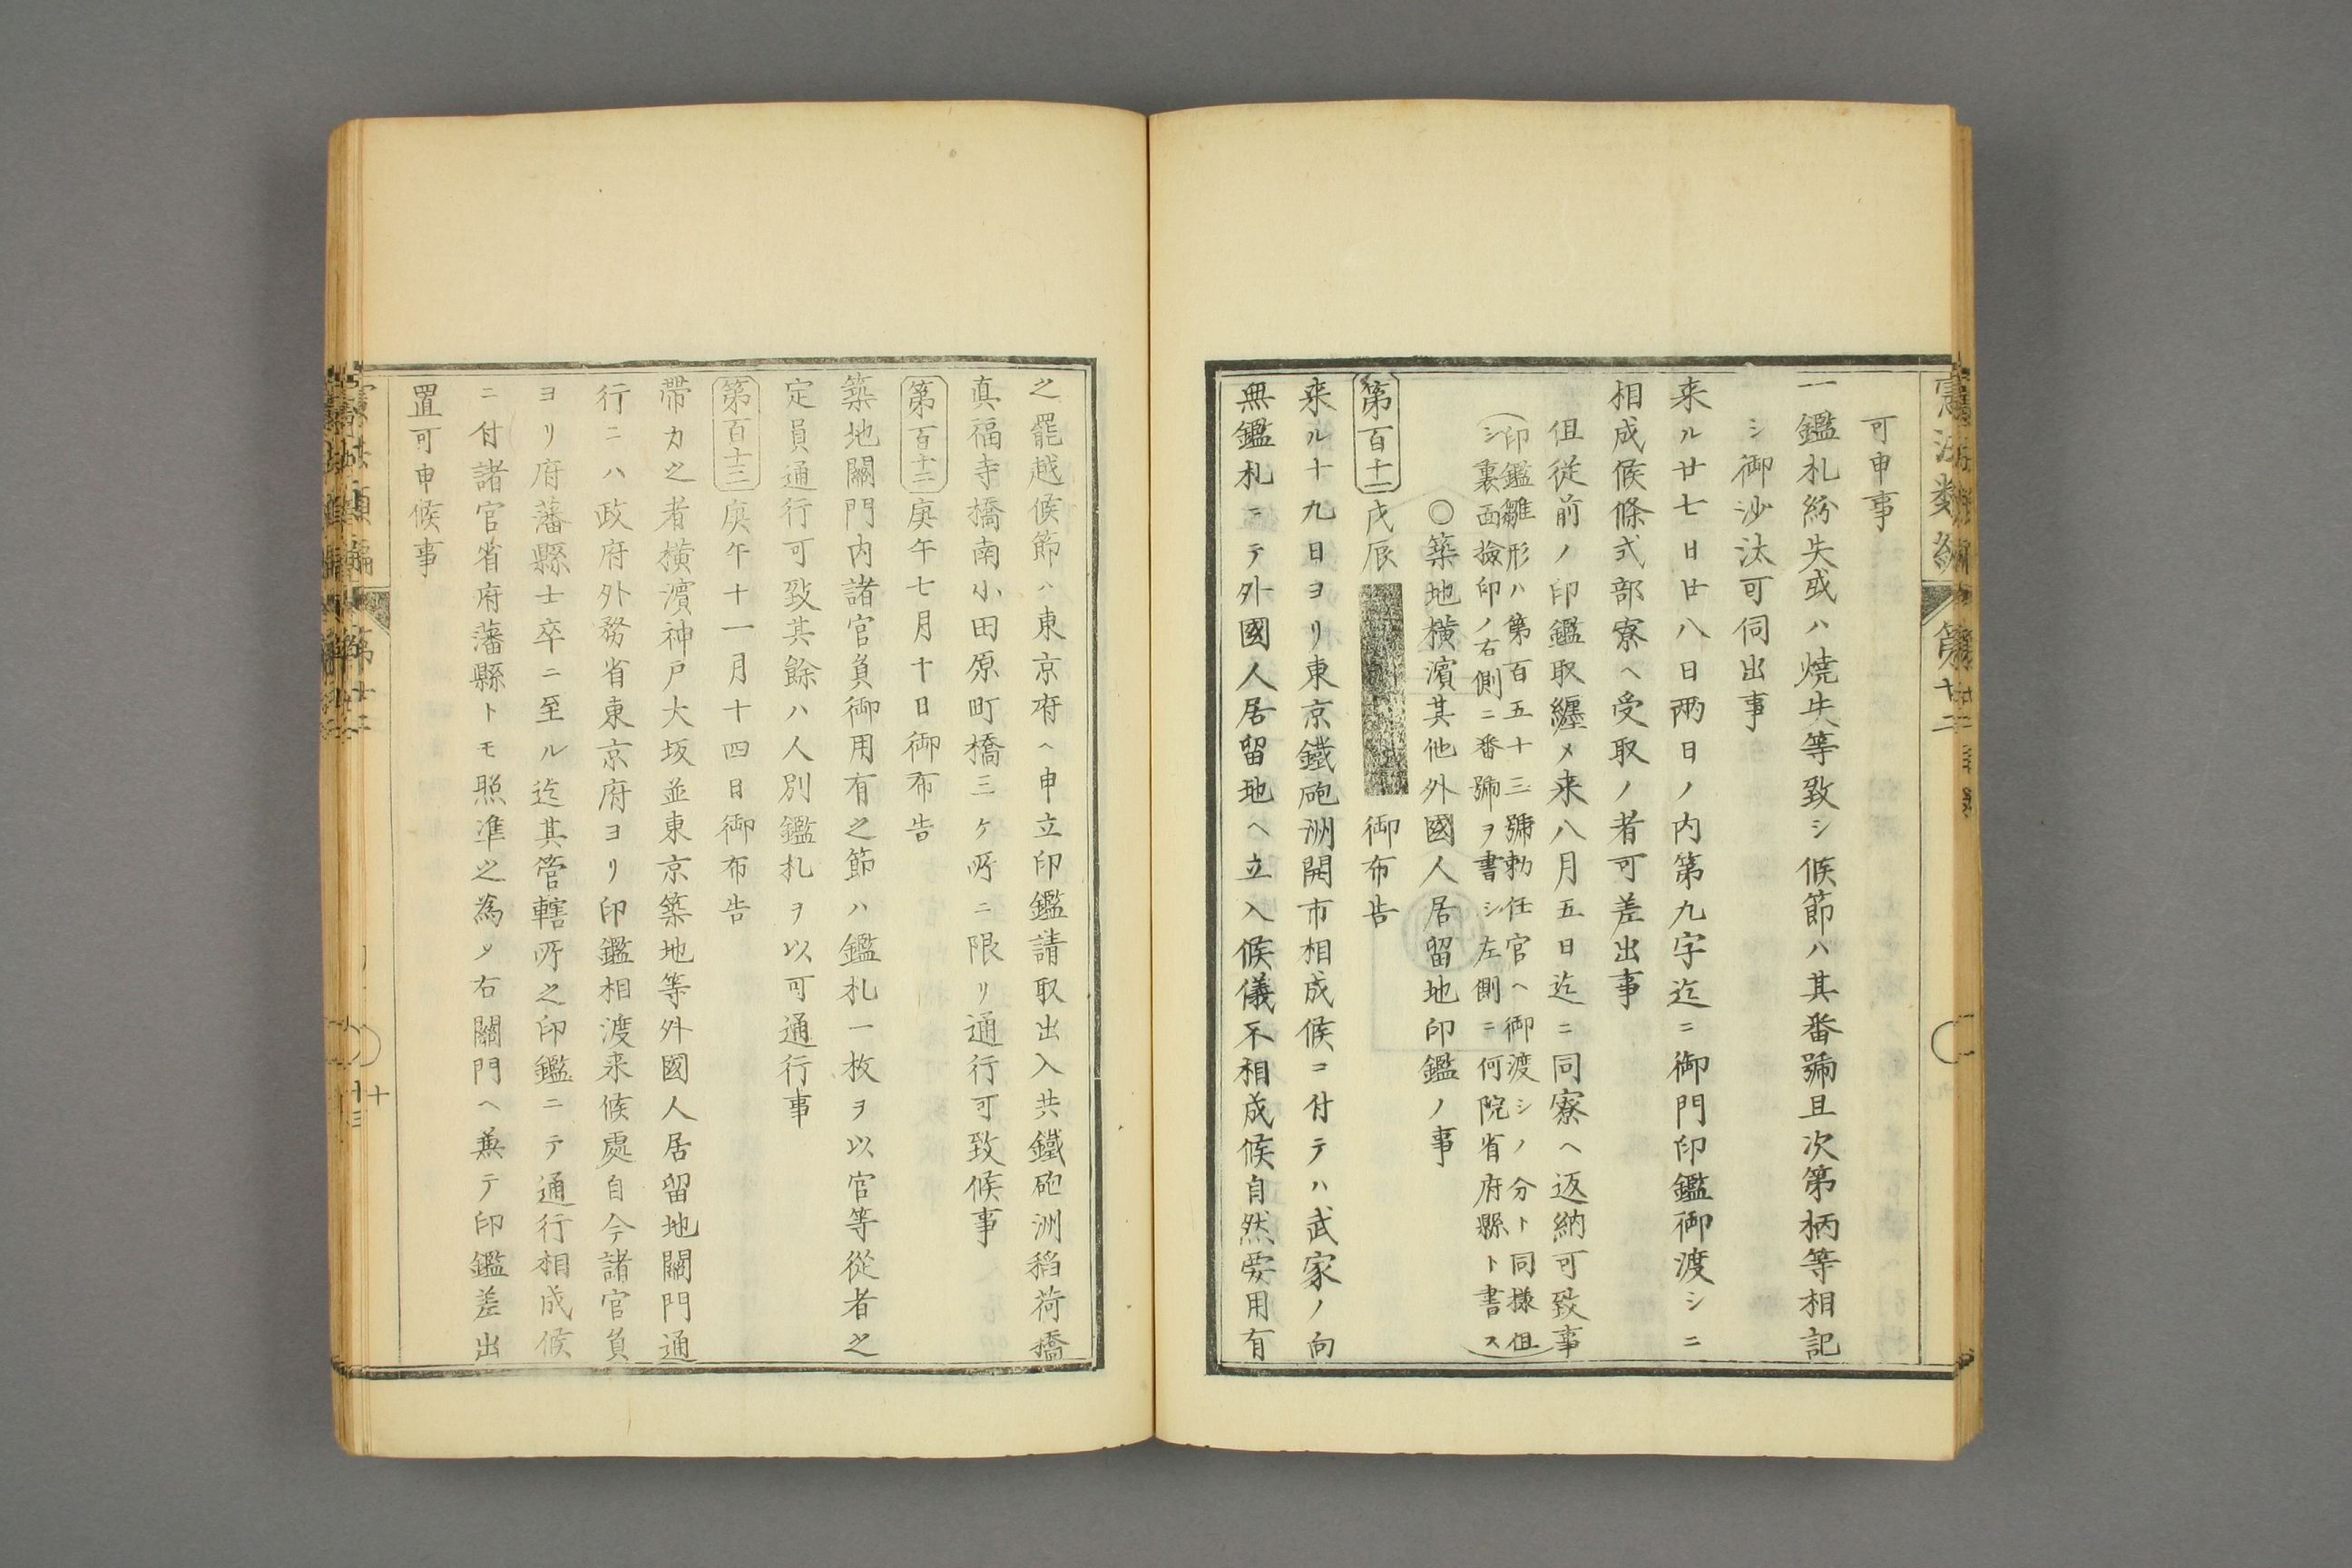 可申事
一鑑札紛失或ハ焼失等致シ候節ハ其番號且次第柄等相記
シ御沙汰可伺出事
来ル廿七日廿八日両日ノ内第九字迄ニ御門印鑑御渡シニ
相成候條式部寮ヘ受取ノ者可差出事
但従前ノ印鑑取纏メ来八月五日迄ニ同寮ヘ返納可致事
(印鑑雛形ハ第百五十三號勅任官ヘ御渡シノ分ト同様但
シ裏面撿印ノ右側ニ番號ヲ書シ左側ニ何院省府縣ト書ス)
〇築地横濱其他外國人居留地印鑑ノ事
第百十一戊辰 御布告
来ル十九日ヨリ東京鐵砲洲開市相成候ニ付テハ武家ノ向
無鑑札ニテ外國人居留地ヘ立入候儀不相成候自然要用有
之罷越候節ハ東京府ヘ申立印鑑請取出入共鐵砲洲稻荷橋
真福寺橋南小田原町橋三ケ所ニ限リ通行可致候事
第百十二庚午七月十日御布告
築地關門内諸官員御用有之節ハ鑑札一枚ヲ以官等從者之
定員通行可致其餘ハ人別鑑札ヲ以可通行事
第百十三庚午十一月十四日御布告
帶刀之者横濱神戸大坂並東京築地等外國人居留地關門通
行ニハ政府外務省東京府ヨリ印鑑相渡来候處自今諸官員
ヨリ府藩縣士卒ニ至ル迄其管轄所之印鑑ニテ通行相成候
ニ付諸官省府藩縣トモ照準之為メ右關門ヘ兼テ印鑑差出
置可申候事